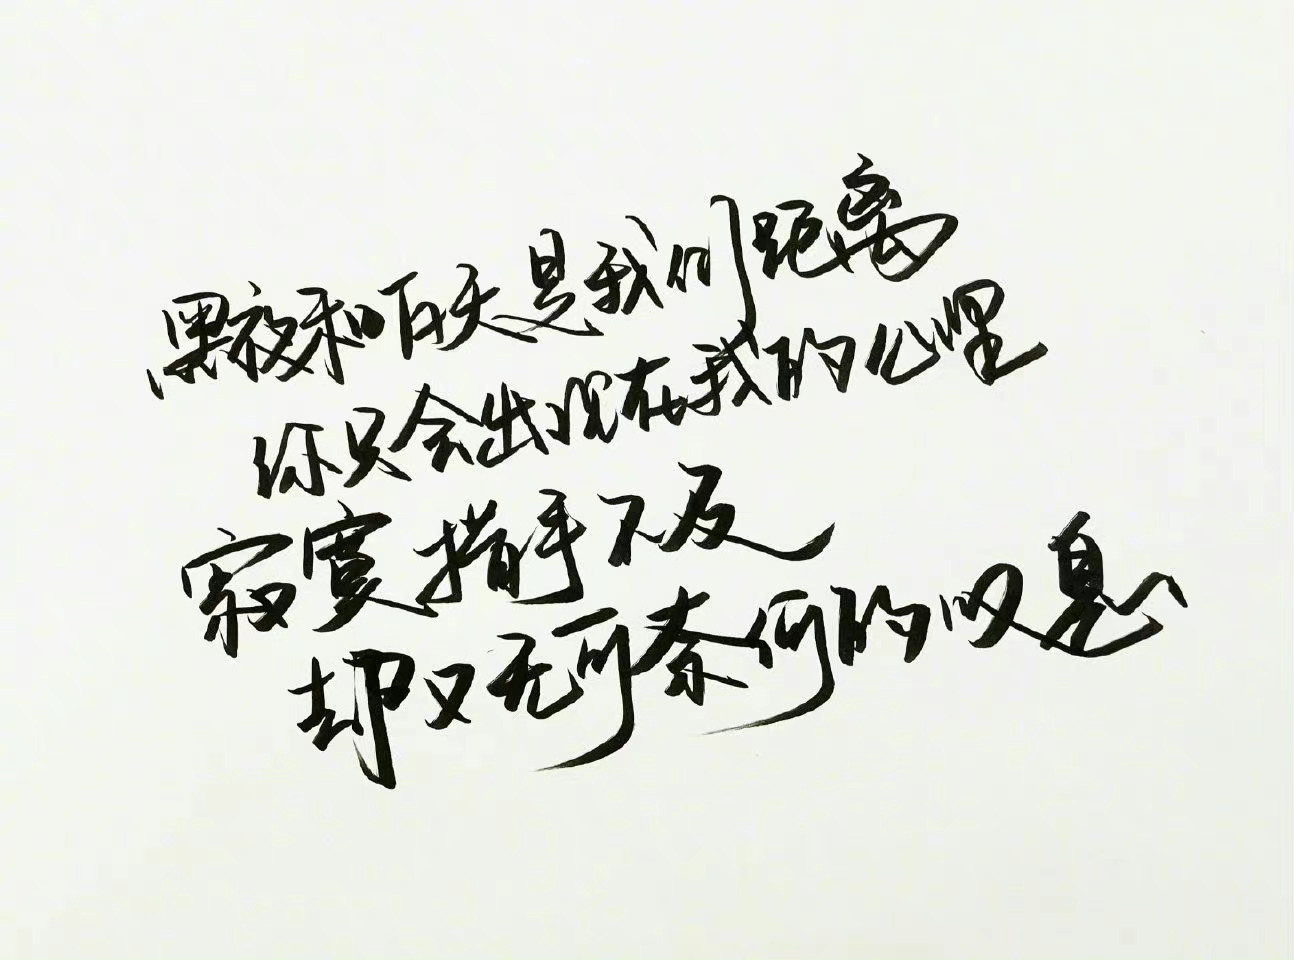 黑夜和白天是我们距离
你只会出现在我的心里
寂寞措手不及
却又无可奈何的叹息